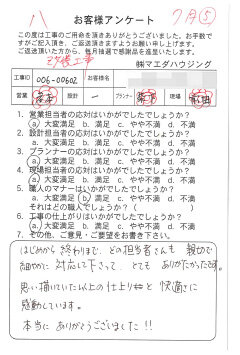 八 7月⑤
お客様アンケート
この度は工事のご用命を頂きありがとうございました。お手数で
すがご記入頂き、ご返送頂きますようお願い申し上げます。
ご返送頂いた方から、毎月抽選で感謝品を進呈いたします。
改修工事 ㈱マエダハウジング
工事ID 006-00602 お客様名
営業 設計 ー プランナー 現場
1. 営業担当者の応対はいかがでしたでしょうか?
a.大変満足 b.満足 c.やや不満 d.不満
2. 設計担当者の応対はいかがでしたでしょうか?
a.大変満足 b.満足 c.やや不満 d.不満
3. プランナーの応対はいかがでしたでしょうか?
a.大変満足 b.満足 c.やや不満 d.不満
4. 現場担当者の応対はいかがでしたでしょうか?
a.大変満足 b.満足 c.やや不満 d.不満
5. 職人のマナーはいかがでしたでしょうか?
a.大変満足 b.満足 c.やや不満 d.不満
それはどの職人でしょうか?( )
6. 工事の仕上がりはいかがでしたでしょうか?
a.大変満足 b.満足 c.やや不満 d.不満
7. その他、ご意見・ご要望をお書き下さい。
はじめから終わりまで、どの担当者さんも親切で
細やかに対応して下さって、とてもありがたかったです。
思い描いていた以上の仕上りと快適さに
感動しています。
本当にありがとうございました!!